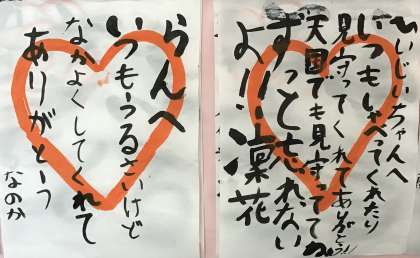 ひいじいちゃんへ
いつもしゃべってくれたり
見守ってくれてありがとう!!
天国でも見守っててね
ずっと忘れない
より凜花
らんへ
いつもうるさいけど
なかよくしてくれて
ありがとう
なのか